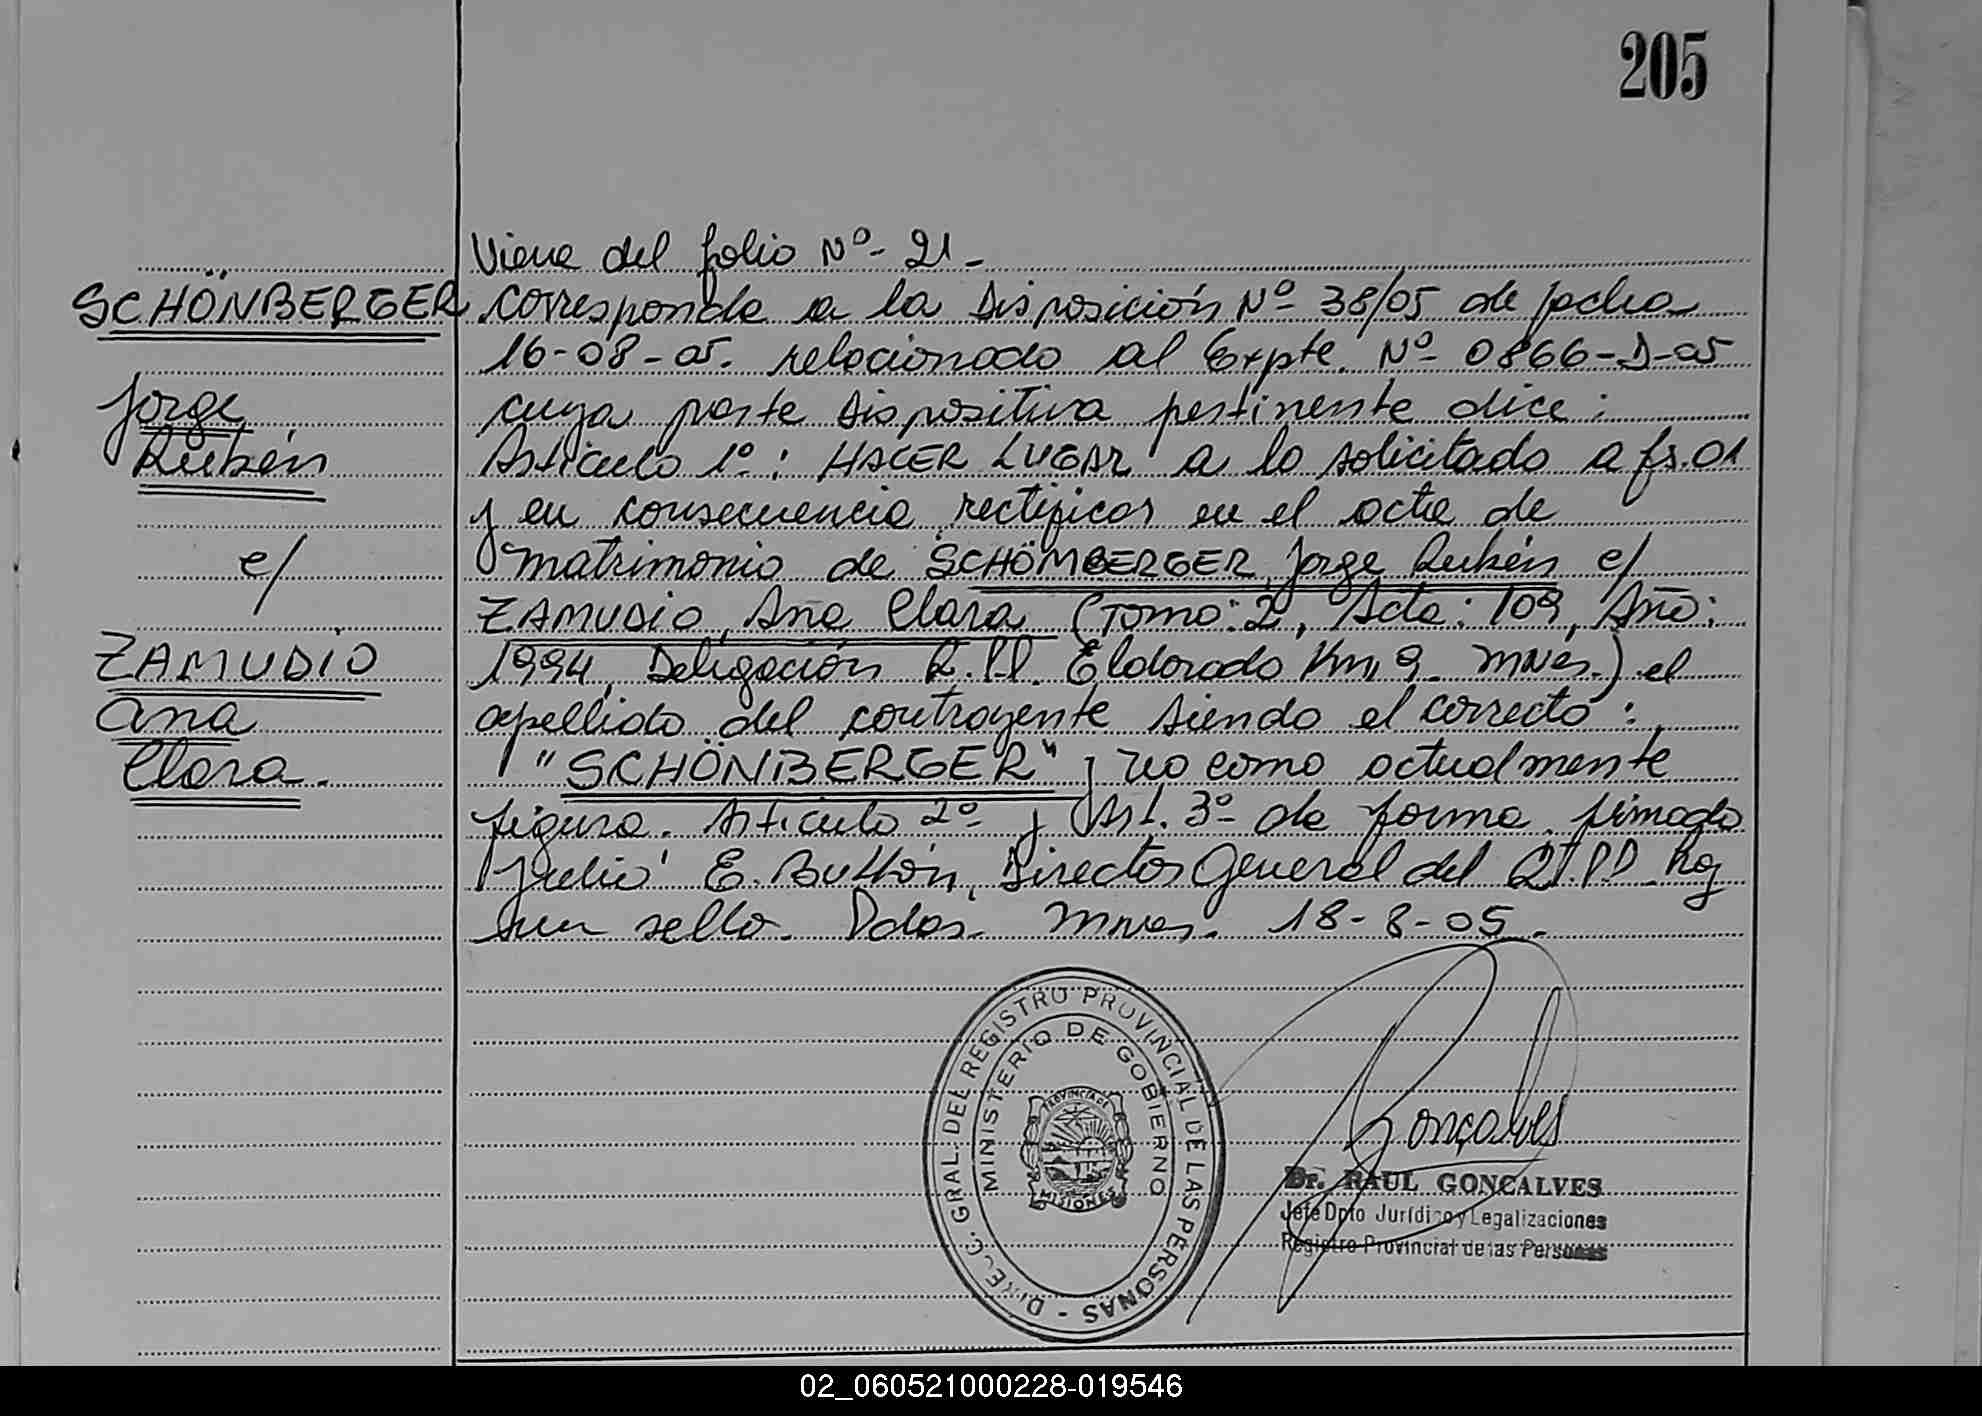 205
Viene del folio Nº- 21-
SCHÖNBERGER
Jorge
Rubén
c/
ZAMUDIO
Ana
Clara.
Corresponde a la Disposición Nº- 38/05 de fecha
16-08-05. relacionado al Expte. Nº- 0866-D-05
cuya parte dispositiva pertinente dice:
Artículo 1º: HACER LUGAR a lo solicitado a fs.01
y en consecuencia rectificar en el acta de
matrimonio de SCHÖMBERGER, Jorge Rubén c/
ZAMUDIO, Ana Clara (Tomo: 2, Acta: 109, Año:
1994, Delegación R.P.P. Eldorado Km, 9- Mnes.) el
apellido del contrayente siendo el correcto:
"SCHÖNBERGER" y no como actualmente
figura. Artículo 2º y Art. 3º de forma. firmado
Julio E. Buttón, Director General del R.P.P. Hay
un sello. Pdas. Mnes. 18-8-05.
DIREC. GRAL. DEL REGISTRO PROVINCIAL DE LAS PERSONAS -
MINISTERIO DE GOBIERNO
PROVINCIA DE
MISIONES
Goncalves
Dr. RAUL GONCALVES
Jefe Dpto Jurídico y Legalizaciones
Registro Provincial de las Personas
02_060521000228-019546